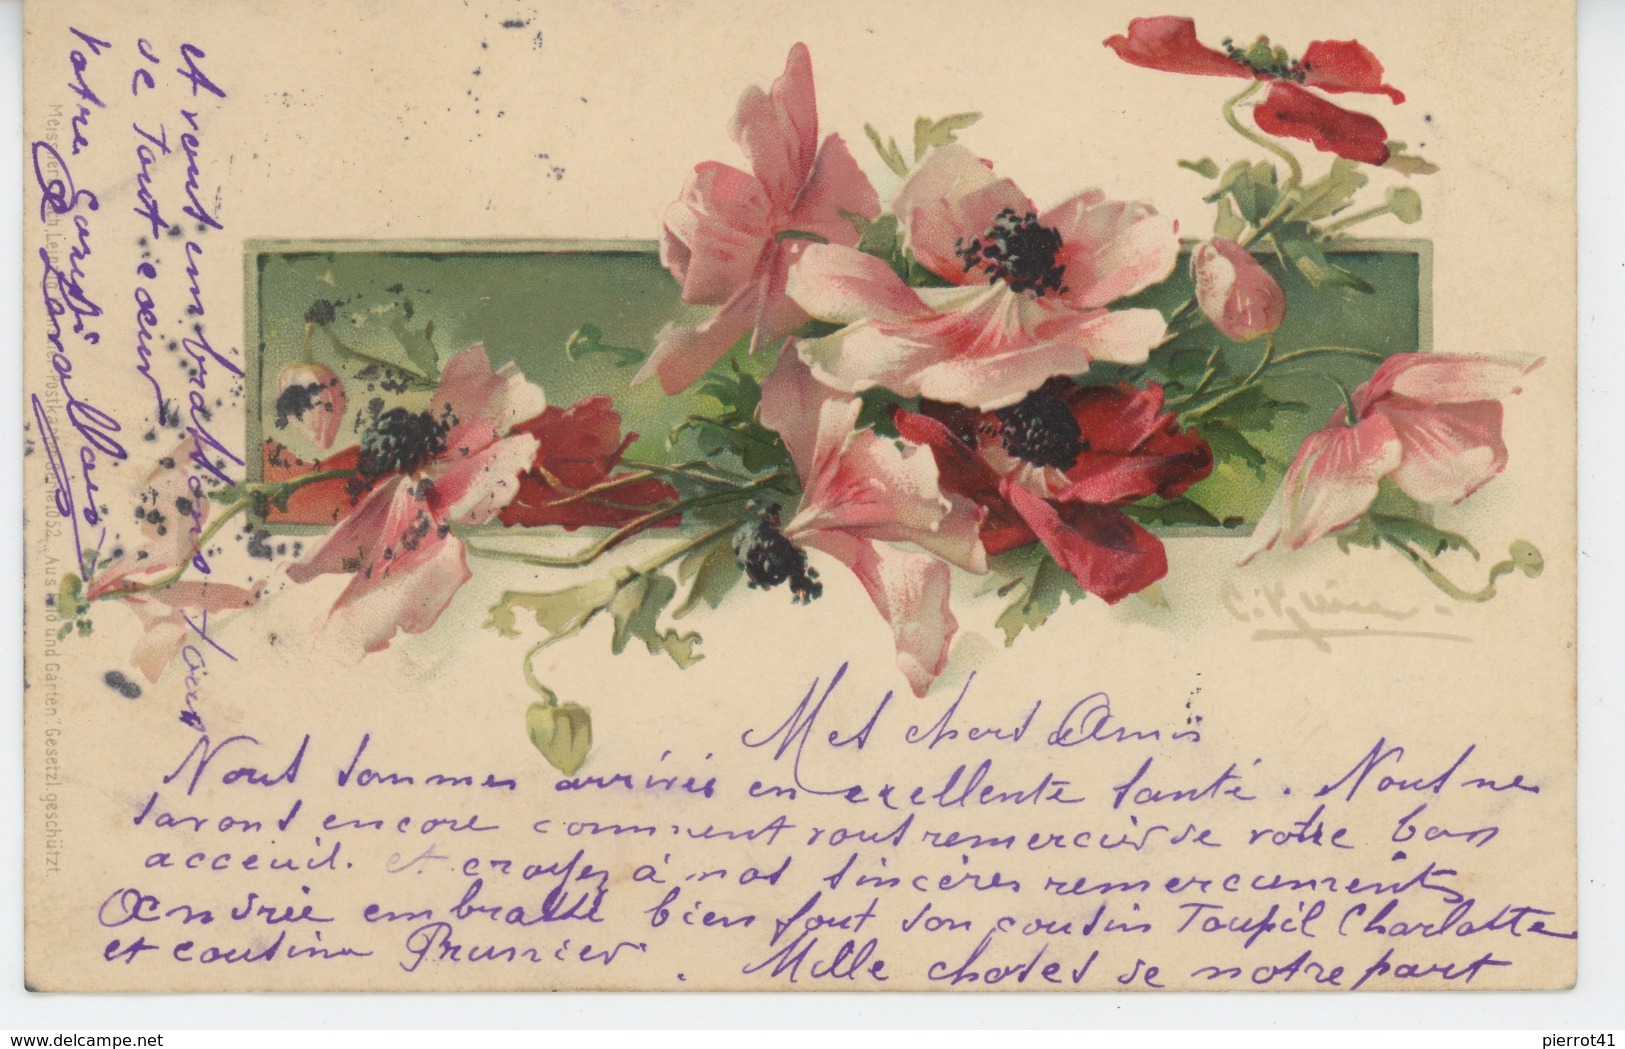 Mes chers Amis
Nous sommes arrivés en exellente santé. Nous ne
savons encore comment vous remercier de votre bon
acceuil. et croyez à nos sincères remerciements
Andrée embrasse bien fort son cousin Toupil Charlotte
et cousine Prunier. Mille choses de notre part
et vous embrassons tous
de tout cœur
Votre Cousi
Meissner Leipzig Postkarten Serie 1052 „Aus Feld und Garten" Gesetzl. geschützt.
C. Klein
www.delcampe.net
pierrot41